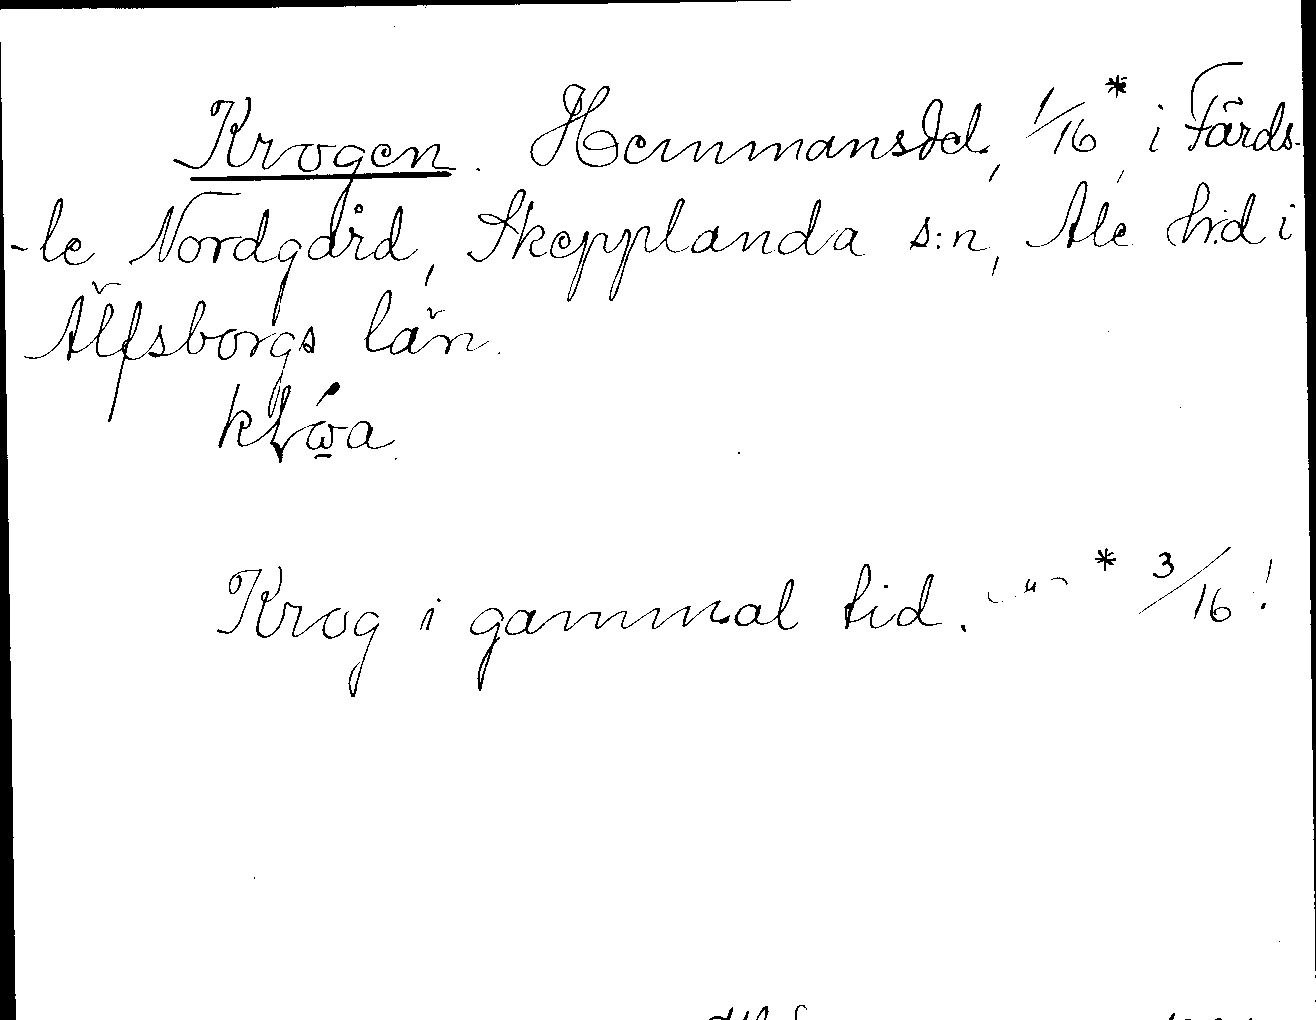 Krogen. Hemmansdel, 1/16* i Färds-
-le Nordgård, Skepplanda s:n, Ale h:d i
Älfsborgs län.
Krog i gammal tid. — " — * 3/16!